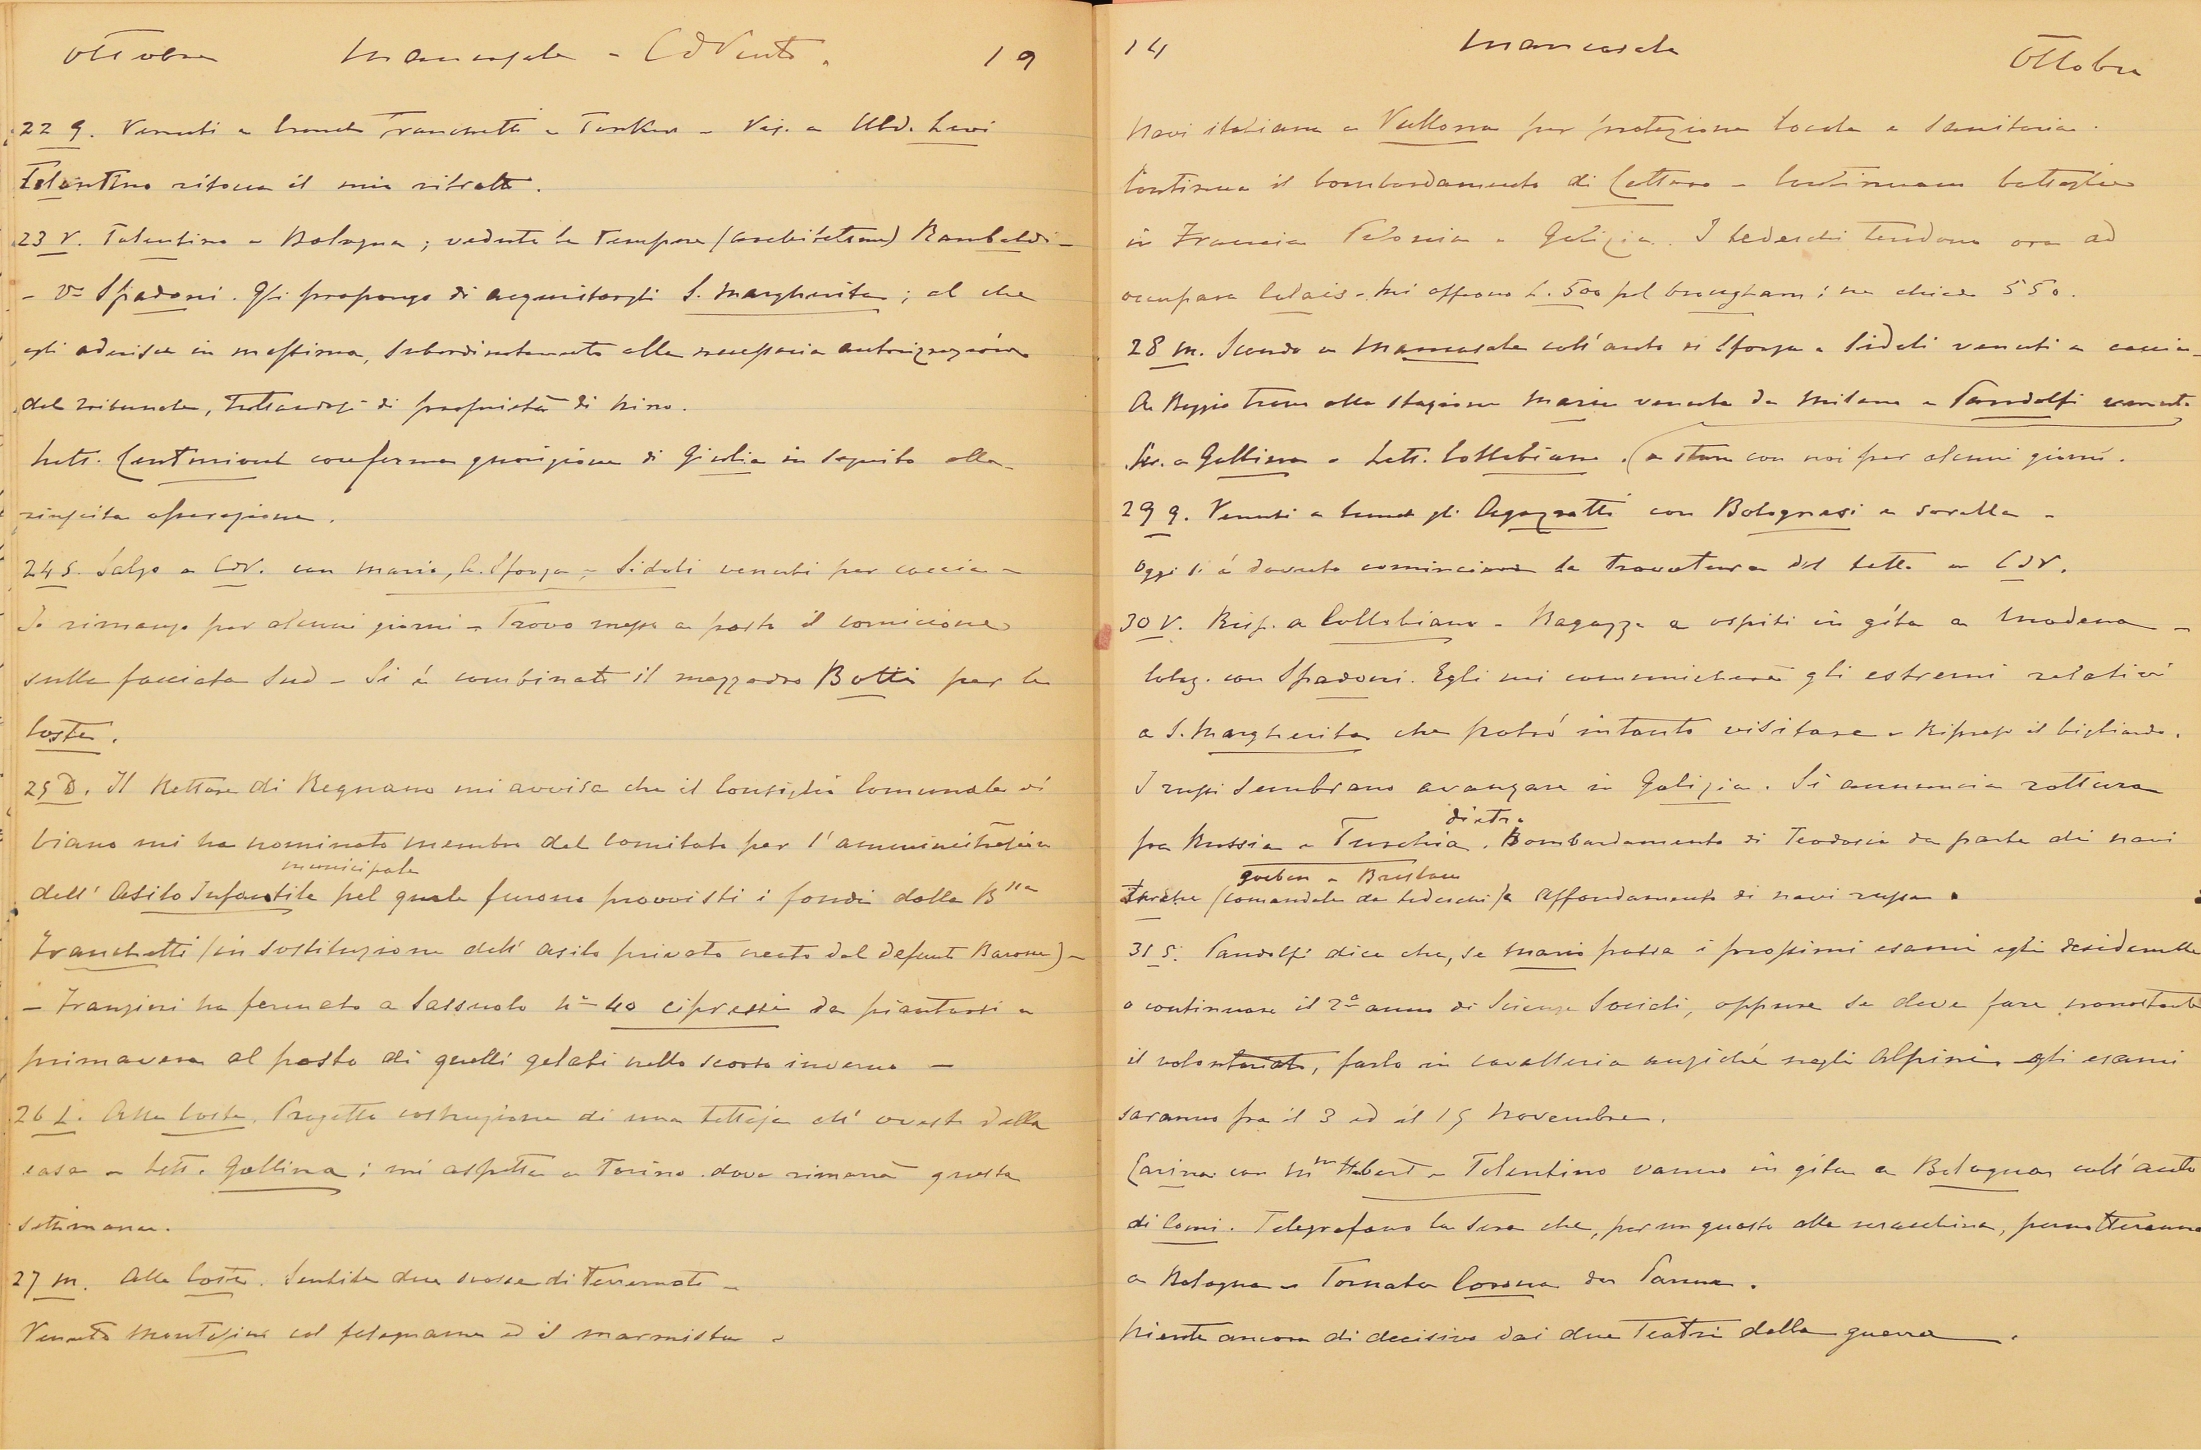 Ottobre Mancasale - CdVento. 19
22 g. Venuti a lunch Franchetti e Tonker - Vis. a Uld. Levi
Tolentino ritocca il mio ritratto.
23 V. Tolentino a Bologna; vedute le Tempere (architetture) Rambaldi -
- Va Spadoni. Gli propongo di acquistargli S. Margherita; al che
egli aderisce in massima, subordinatamente alla necessaria autorizzazione
del tribunale, trattandosi di proprietà di Nino.
Lett. Centurioni conferma guarigione di Giulia in seguito alla
riuscita operazione.
24 S. Salgo a CdV. con Mario, A. Sforza e Sidoli venuti per caccia -
Io rimango per alcuni giorni - Trovo messo a posto il cornicione
sulla facciata Sud - Si è combinato il mezzadro Botti per la
Costa.
25 D. Il Rettore di Regnano mi avvisa che il Consiglio Comunale di
Viano mi ha nominato membro del Comitato per l'amministrazione
municipale
dell' Asilo Infantile pel quale furono provvisti i fondi dalla Bssa
Franchetti (in sostituzione dell' asilo privato creato dal defunto Barone) -
- Franzini ha fermato a Sassuolo No 40 cipressi da piantarsi a
primavera al posto di quelli gelati nello scorso inverno -
26 L. Alla Costa. Progetto costruzione di una tettoja all' ovest della
casa - Lett. Gallina; mi aspetta a Torino dove rimarrà questa
settimana.
27 M. Alla Costa. Sentite due scosse di Terremoto -
Venuto Montesini col falegname ed il marmista -
14 Mancasale Ottobre
Navi italiane a Vallona per protezione locale e sanitaria.
Continua il bombardamento di Cattaro - Continuano battaglie
in Francia Polonia e Galizia. I tedeschi tendono ora ad
occupare Calais - Mi offrono L. 500 pel brougham; ne chiedo 550.
28 M. Scendo a Mancasale coll'auto di Sforza e Sidoli venuti a caccia -
A Reggio trovo alla stazione Maria venuta da Milano e Pandolfi venuto
Scr. a Gallina - Lett. Collobiano. (a stare con noi per alcuni giorni.
29 g. Venuti a lunch gli Agazzotti con Bolognesi e sorella -
Oggi si è dovuto cominciare la travatura del tetto a CdV.
30 V. Risp. a Collobiano - Ragazze e ospiti in gita a Modena -
Colloq. con Spadoni. Egli mi comunicherà gli estremi relativi
a S. Margherita che potrò intanto visitare - Ripreso il bigliardo.
I russi sembrano avanzare in Galizia. Si annuncia rottura
dietro
fra Russia e Turchia. Bombardamento di Teodosia da parte di navi
Goeben e Breslau
turche (comandate da tedeschi) e affondamento di navi russe.
31 S. Pandolfi dice che, se Mario passa i prossimi esami egli desiderebbe
o continuare il 2o anno di Scienze Sociali, oppure se deve fare nonostante
il volontariato, farlo in cavalleria anziché negli Alpini. gli esami
saranno fra il 3 ed il 15 Novembre.
Carina con Mm Hebert e Tolentino vanno in gita a Bologna coll'auto
di Corni. Telegrafano la sera che, per un guasto alla macchina, pernotteranno
a Bologna - Tornata Corona da Parma.
Niente ancora di decisivo dai due Teatri della guerra.